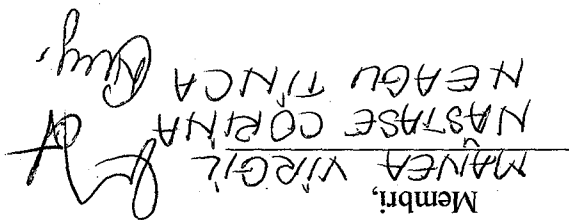 Membri,
MANEA VIRGIL
NASTASE CORINA
NEAGU TINCA